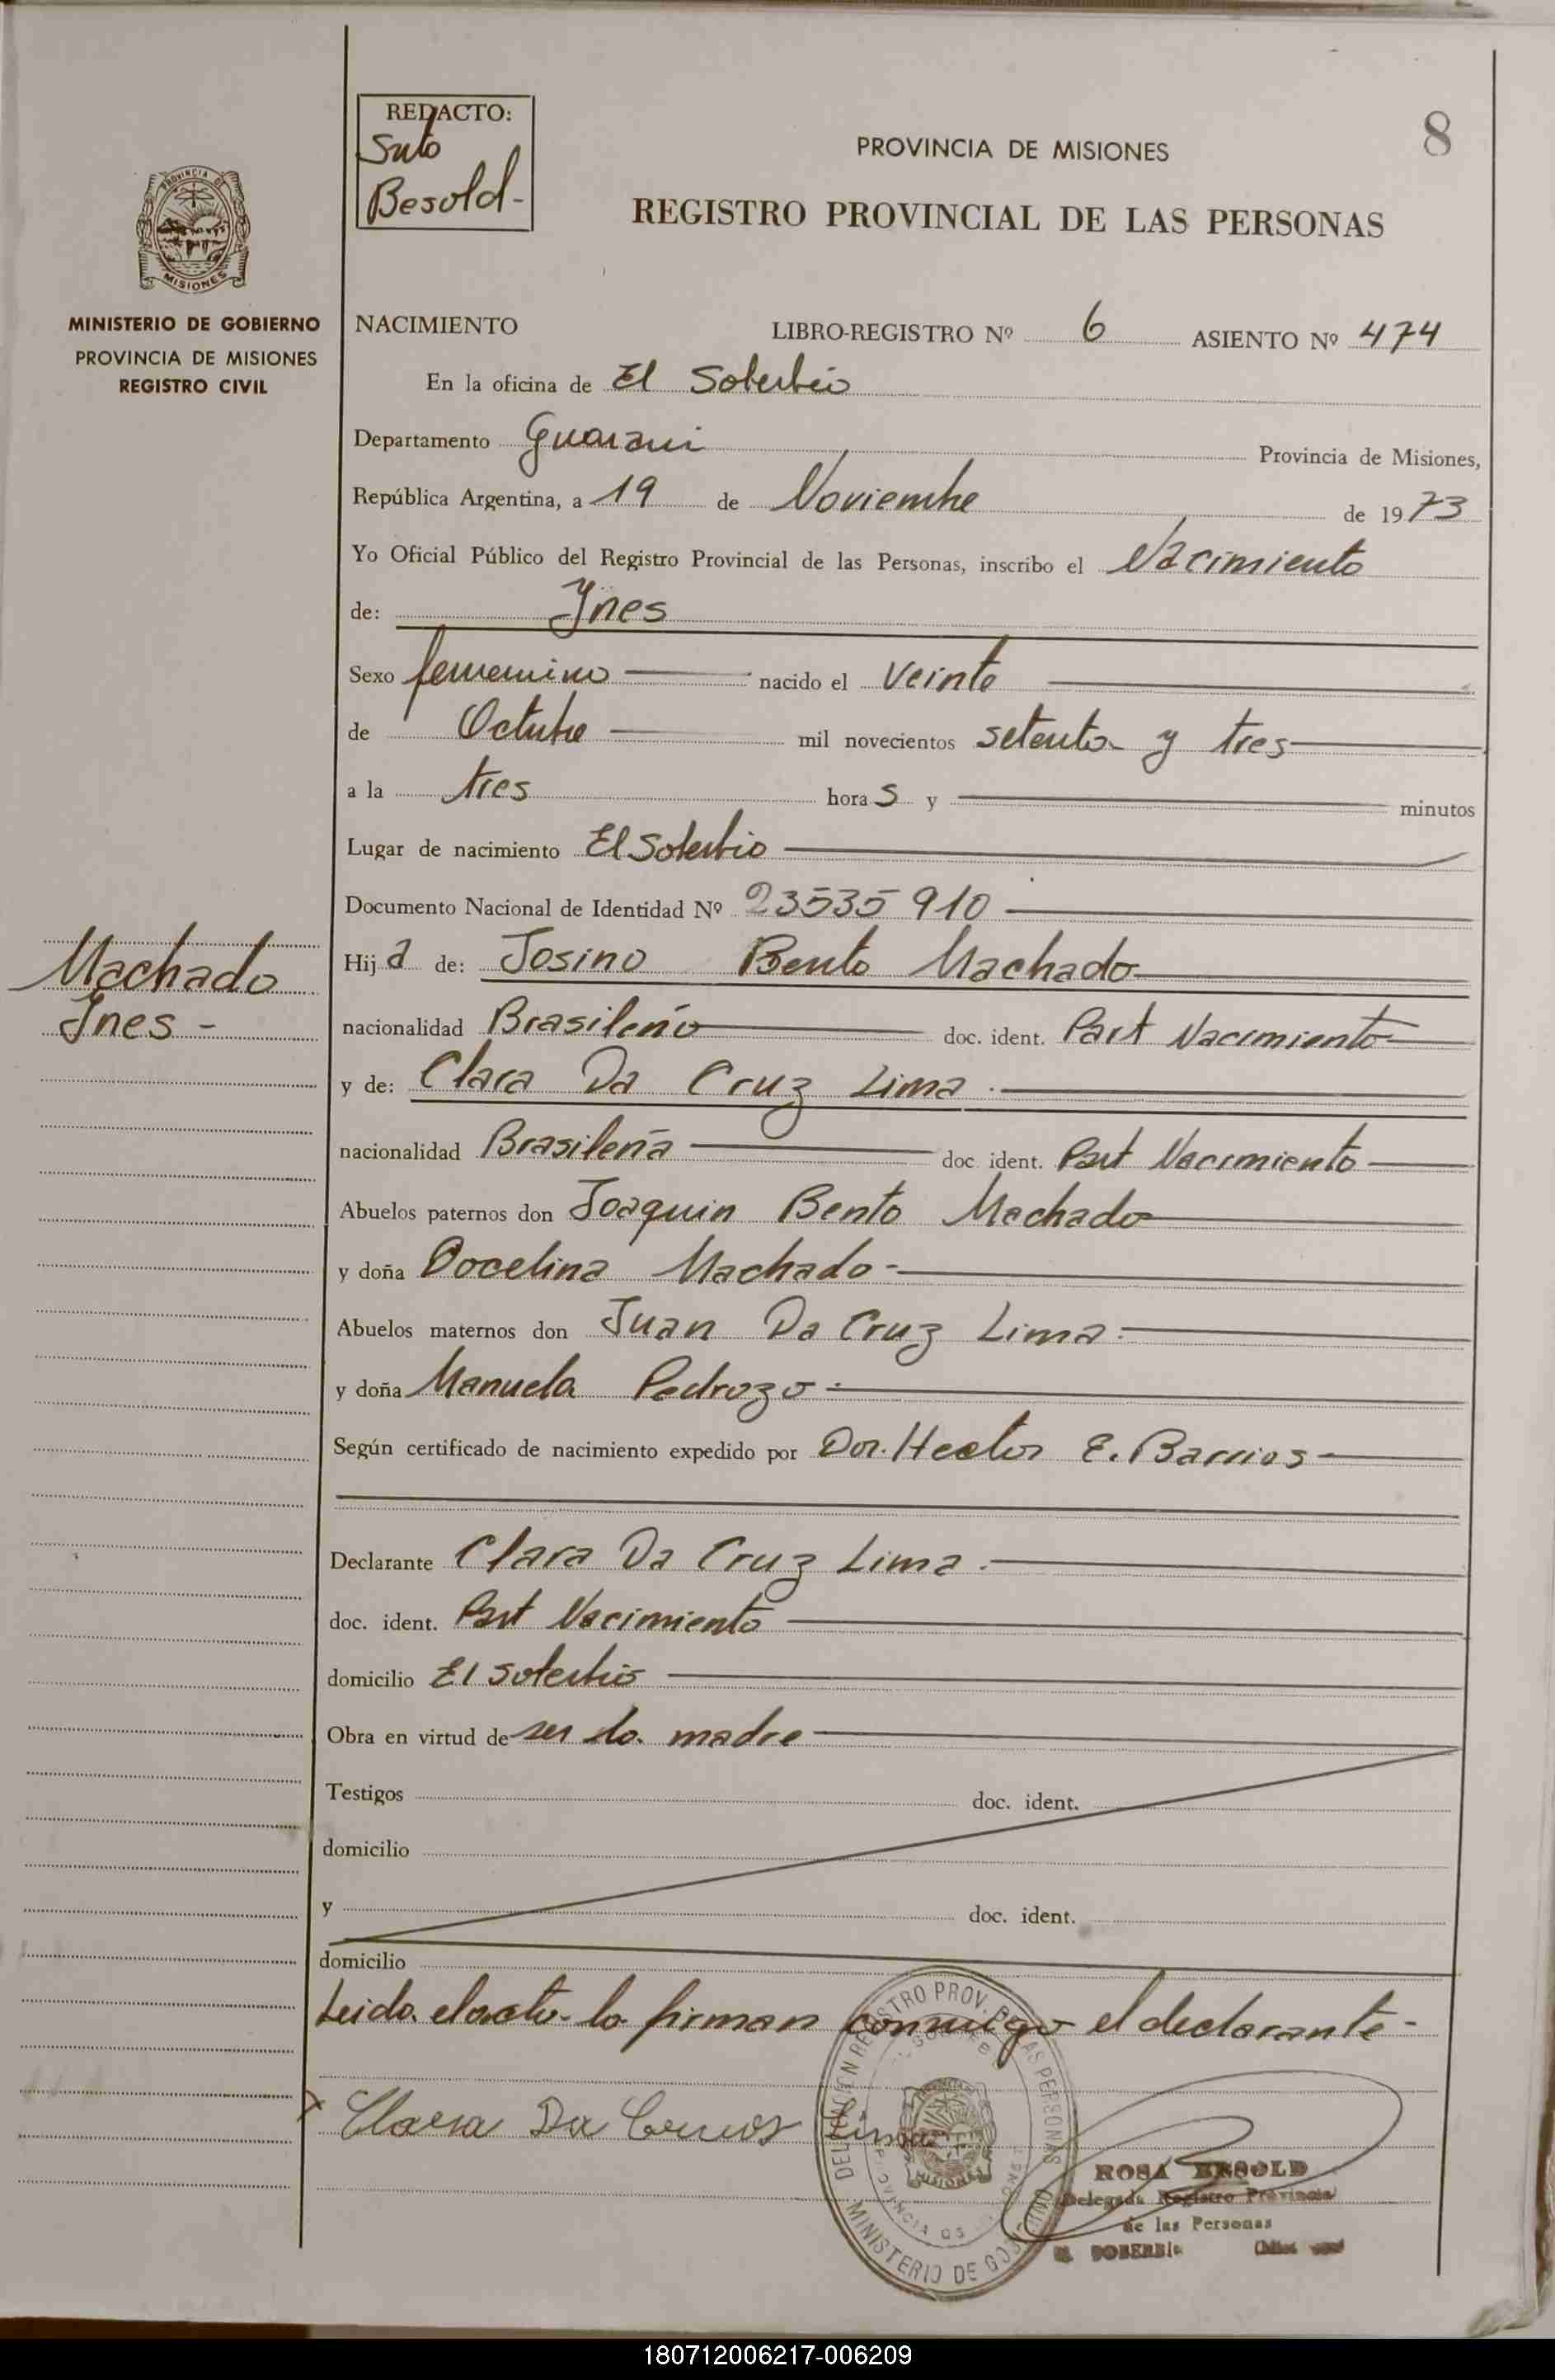 REDACTO:
Besold-
8
PROVINCIA DE MISIONES
REGISTRO PROVINCIAL DE LAS PERSONAS
PROVINCIA DE
MISIONES
MINISTERIO DE GOBIERNO
PROVINCIA DE MISIONES
REGISTRO CIVIL
NACIMIENTO LIBRO-REGISTRO Nº 6 ASIENTO Nº 474
En la oficina de El Soberbio
Departamento Guarani Provincia de Misiones,
República Argentina, a 19 de Noviembre de 1973
Yo Oficial Público del Registro Provincial de las Personas, inscribo el Nacimiento
de: Ynes
Sexo femenino nacido el Veinte
de Octubre mil novecientos setenta y tres
a la tres horas y minutos
Lugar de nacimiento El Soberbio
Documento Nacional de Identidad Nº 23535910
Hija de: Josino Bento Machado
Machado
Ines -
nacionalidad Brasileño doc. ident. Part Nacimiento
y de: Clara Da Cruz Lima.
nacionalidad Brasileña doc. ident. Part Nacimiento
Abuelos paternos don Joaquin Bento Machado
y doña Docelina Machado-
Abuelos maternos don Juan Da Cruz Lima.
y doña Manuela Pedrozo
Según certificado de nacimiento expedido por Dor. Hector E. Barrios
Declarante Clara Da Cruz Lima.
doc. ident. Part Nacimiento
domicilio El Soberbio
Obra en virtud de ser la madre
Testigos doc. ident.
domicilio
y doc. ident.
domicilio
Leida el acta la firman conmigo el declarante-
Clara Da Lima
DELEGACION REGISTRO PROV. DE LAS PERSONAS
MINISTERIO DE GOBIERNO
PROVINCIA
MISIONES
ROSA BESOLD
Delegada Registro Provincial
de las Personas
EL SOBERBIO
180712006217-006209